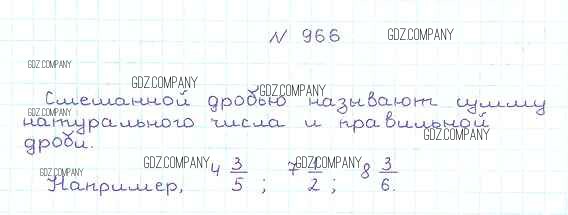 N 966
GDZ.COMPANY
GDZ.COMPANY
GDZ.COMPANY
GDZ.COMPANY
Смешанной дробью называют сумму
GDZ.COMPANY
натурального числа и правильной
GDZ.COMPANY
дроби.
GDZ.COMPANY
GDZ.COMPANY
GDZ.COMPANY
Например, 4 3/5 ; 7 1/2 ; 8 3/6.